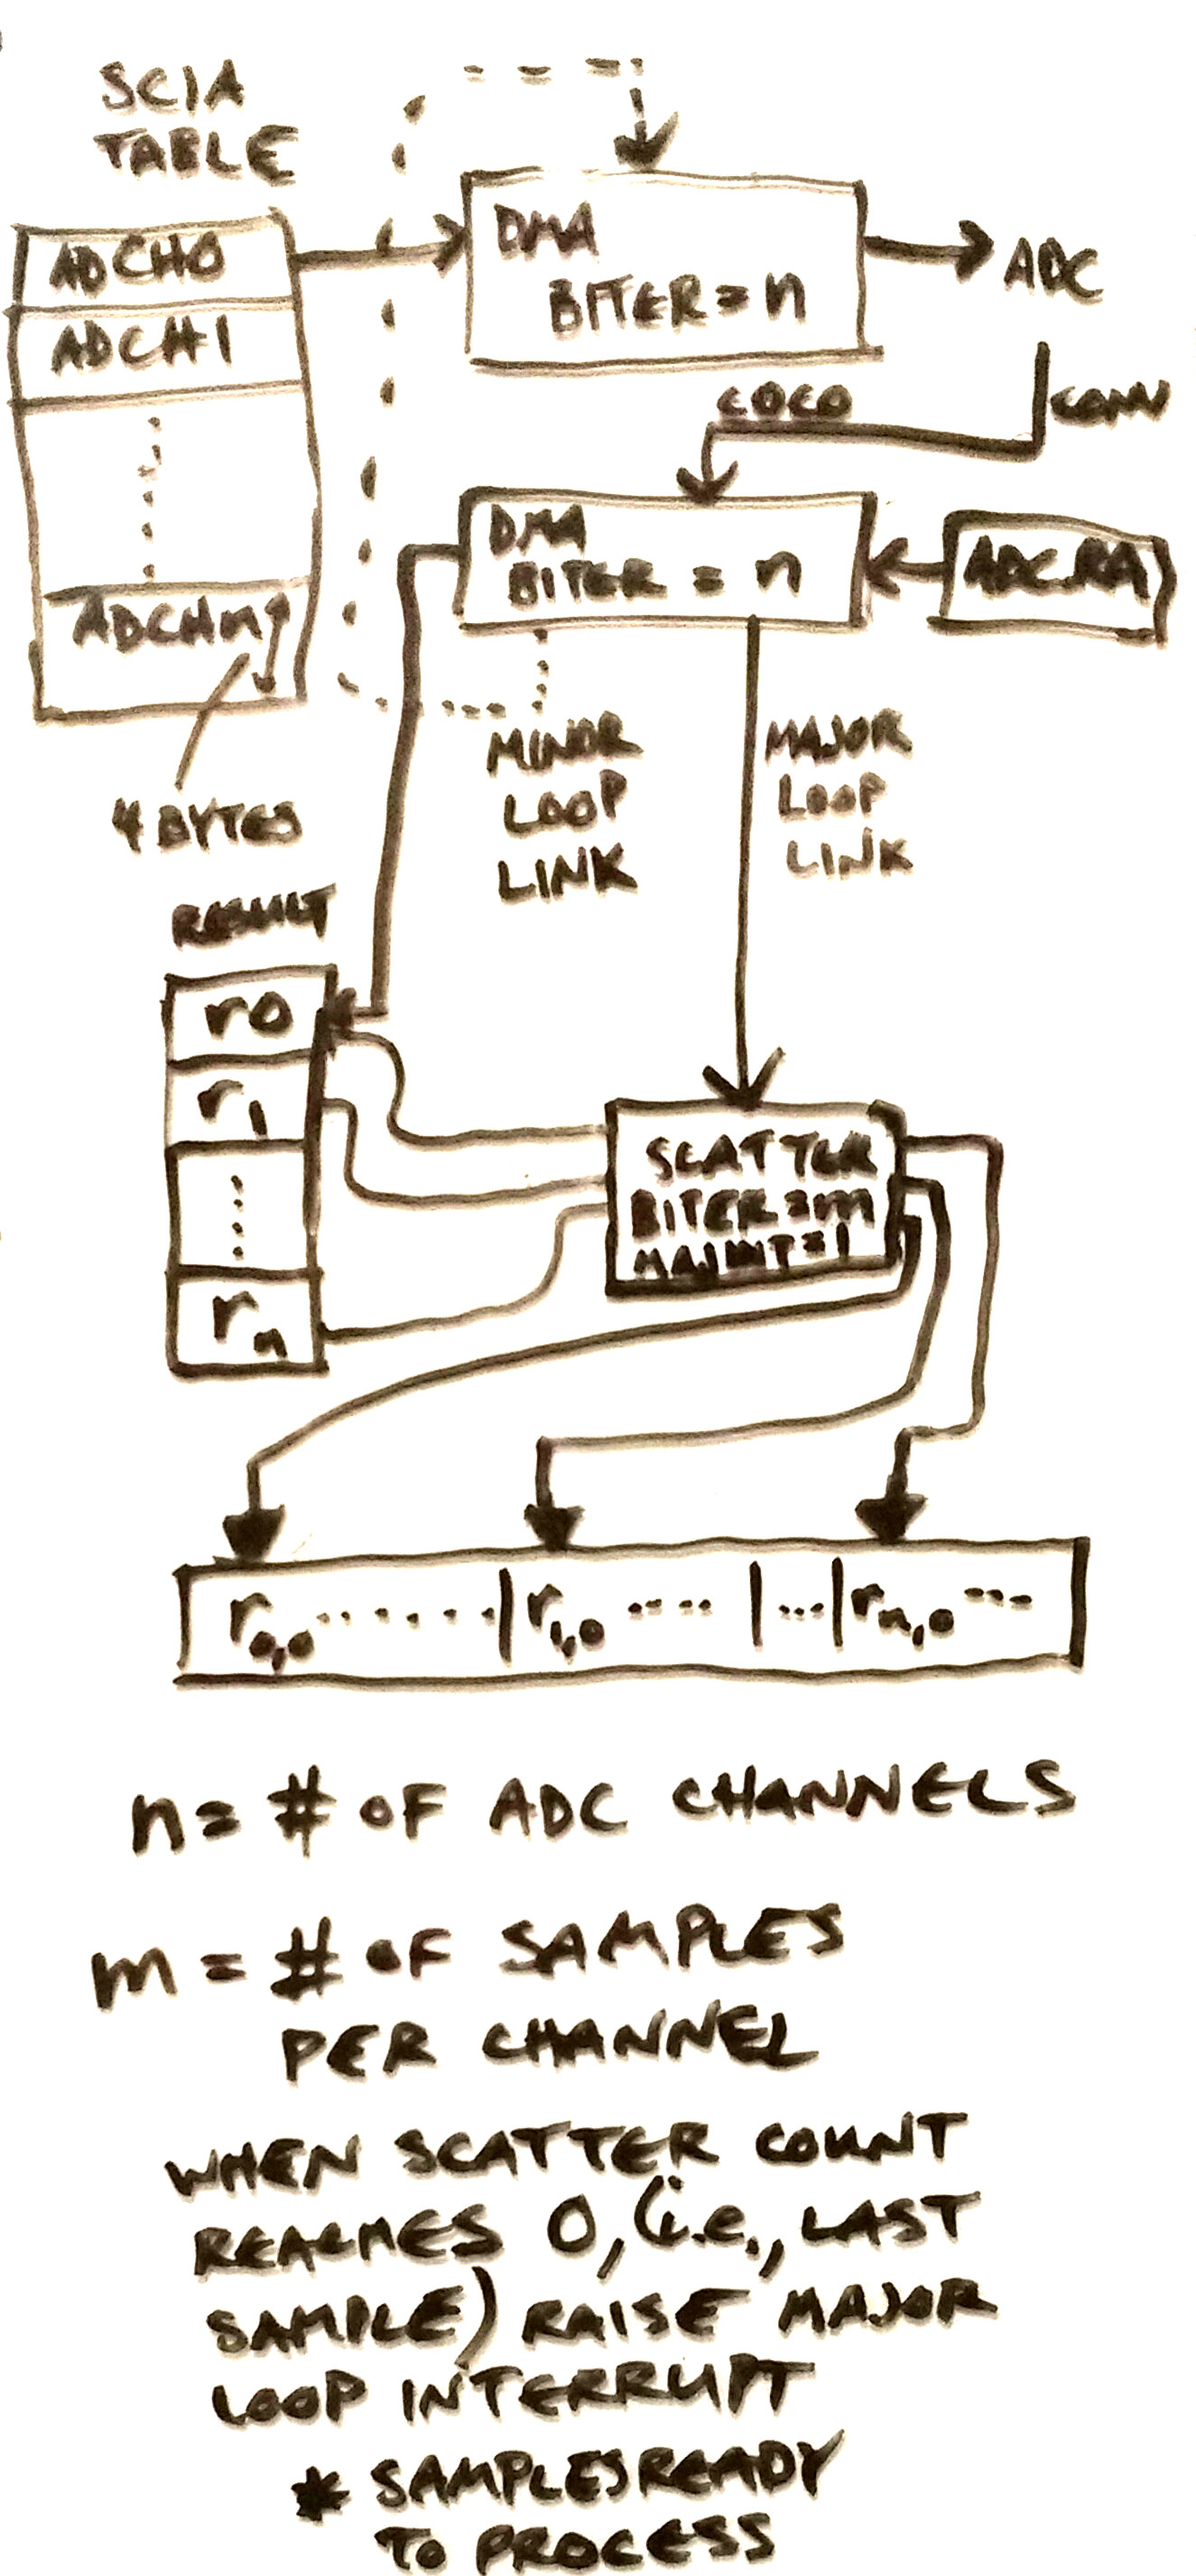 SC1A
TABLE
ADCH0
ADCH1
ADCHn
4 BYTES
DMA
BITER = n
ADC
COCO
CONV
DMA
BITER = n
ADC_RA
MINOR
LOOP
LINK
MAJOR
LOOP
LINK
RESULT
r0
r1
rn
SCATTER
BITER=m
MAJINT=1
r0,0 ....... | r1,0 .... | ... | rn,0 ---
n = # OF ADC CHANNELS
m = # OF SAMPLES
PER CHANNEL
WHEN SCATTER COUNT
REACHES 0, (i.e., LAST
SAMPLE) RAISE MAJOR
LOOP INTERRUPT
* SAMPLES READY
TO PROCESS